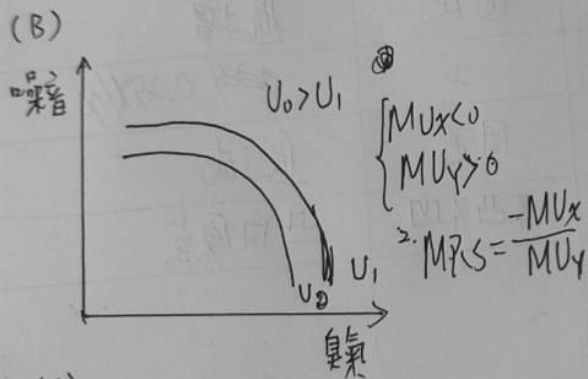 (B)
噪音
U₀>U₁
MUx<0
MUy>0
2. MRS = -MUx / MUy
U₀
U₁
臭氣